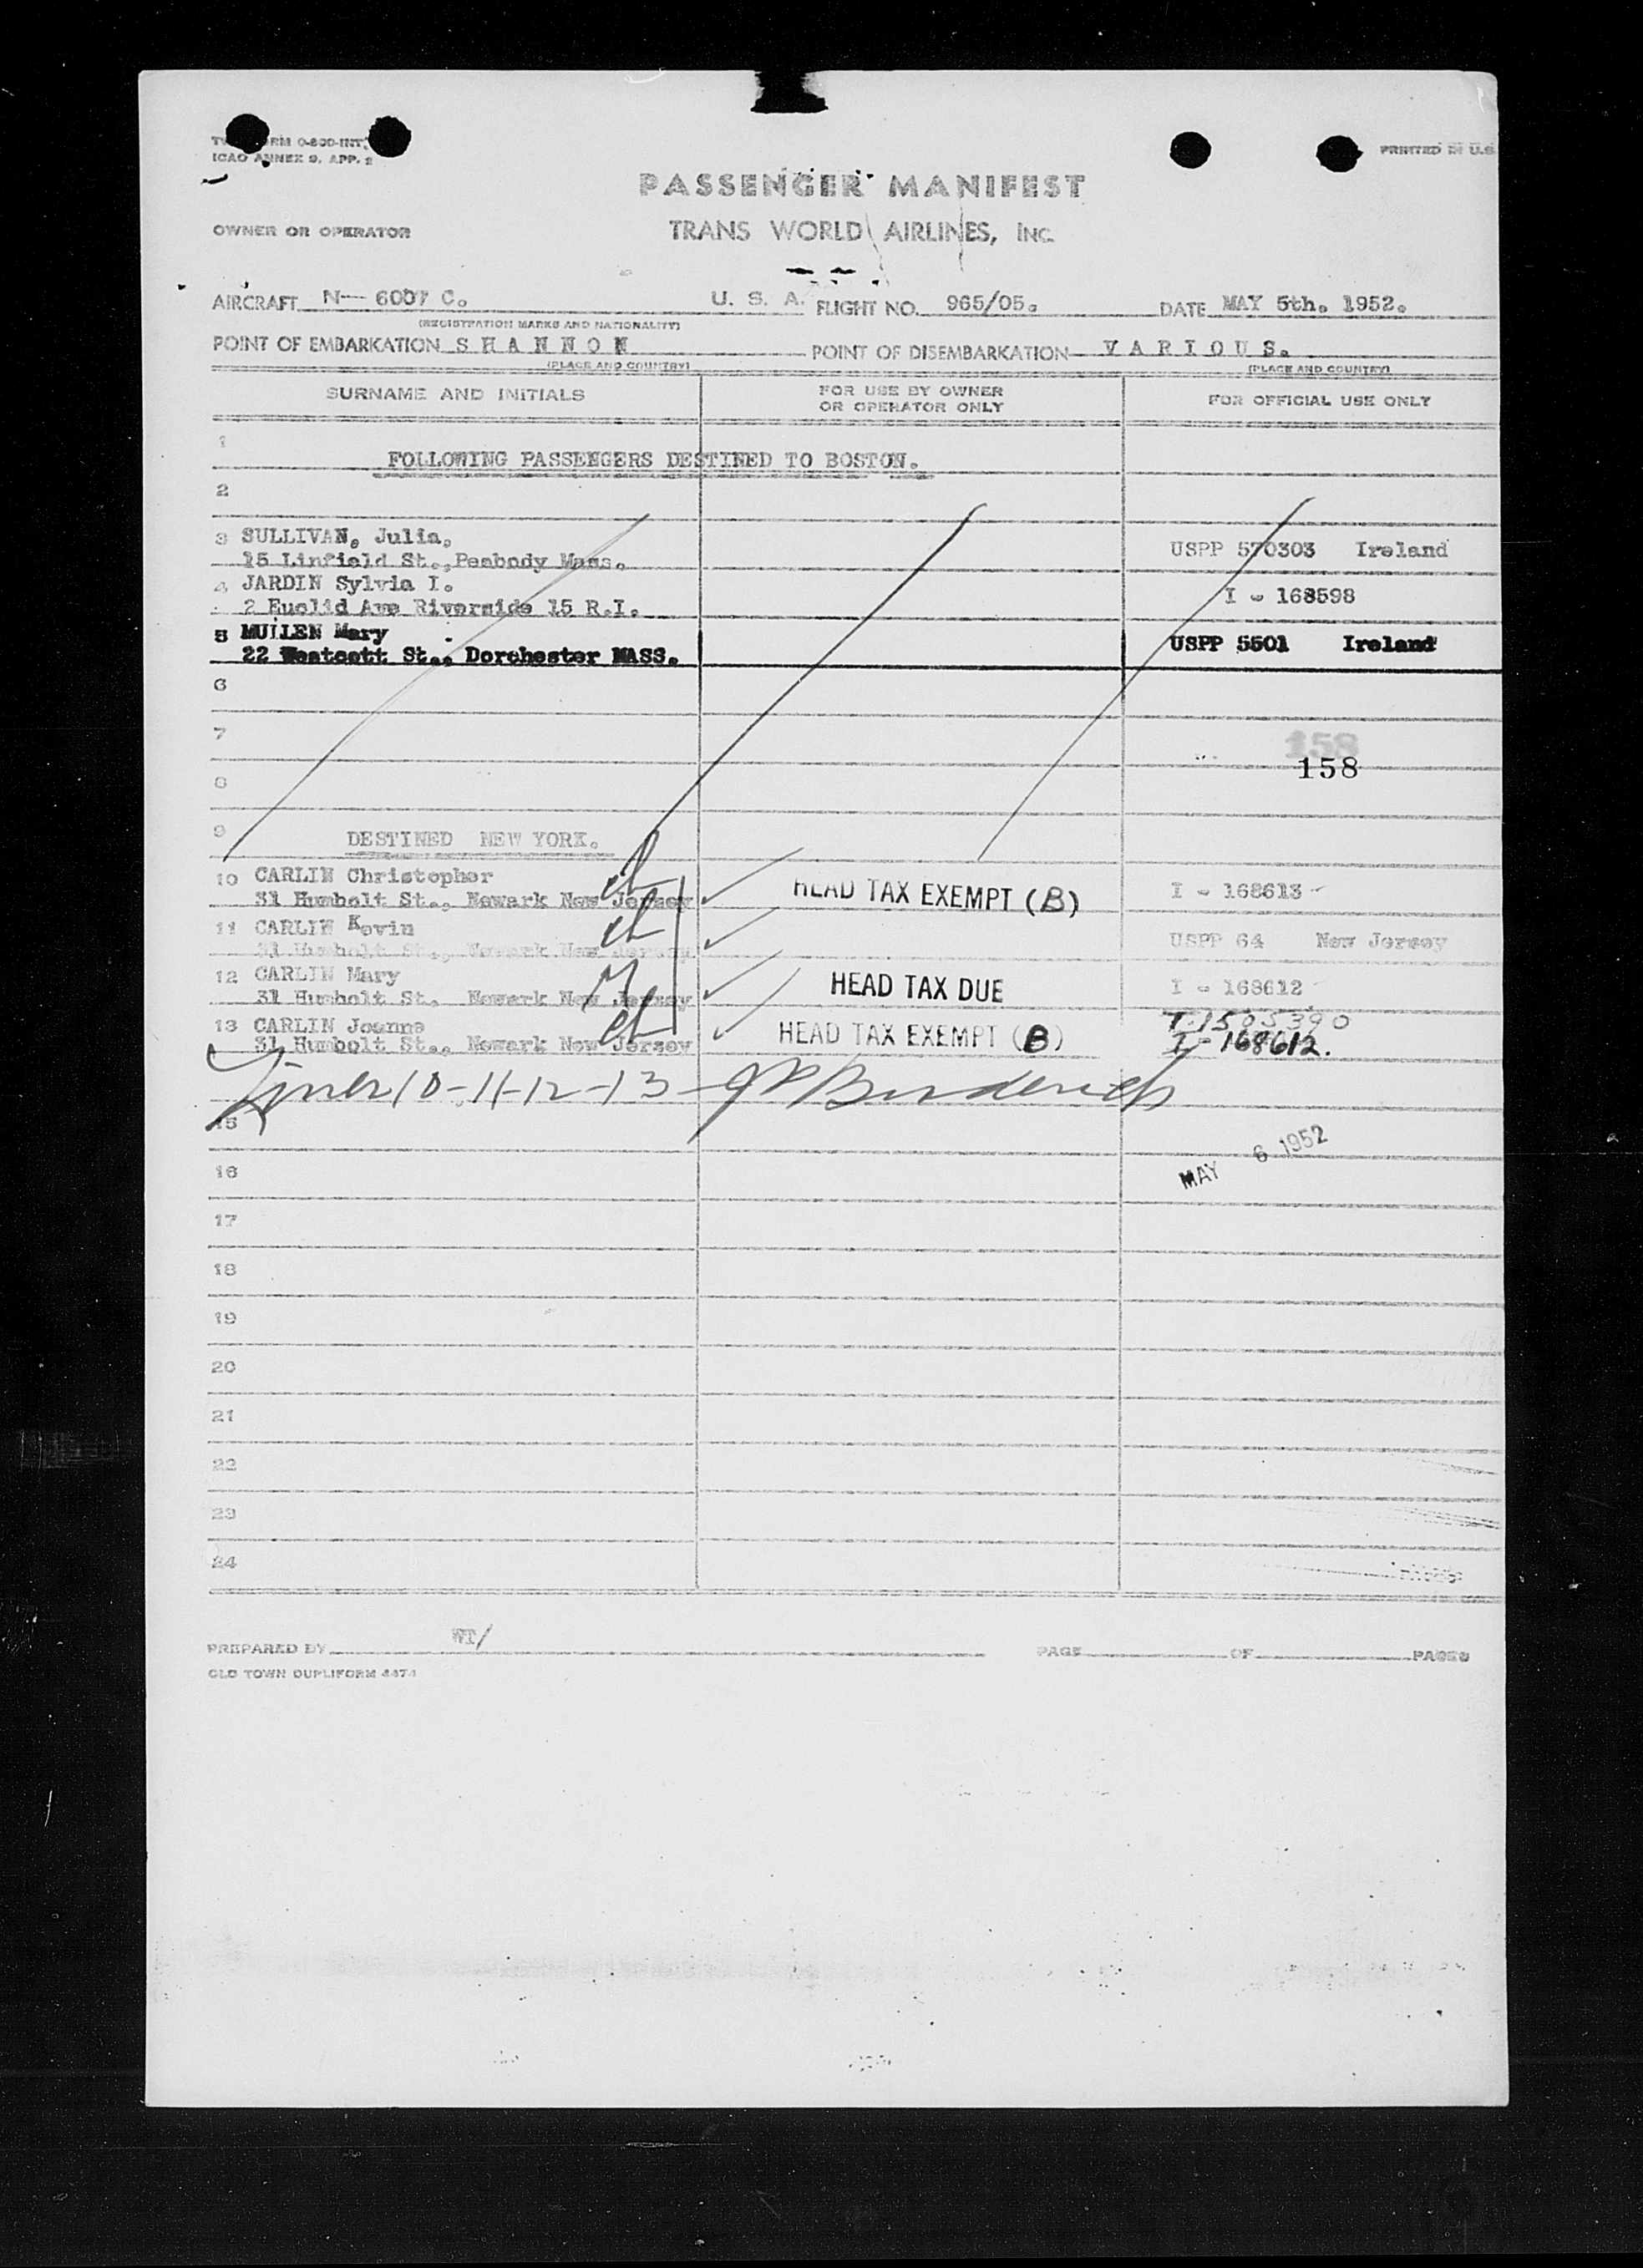 ICAO ANNEX 9, APP. 2
PRINTED IN U.S.
PASSENGER MANIFEST
OWNER OR OPERATOR
TRANS WORLD AIRLINES, INC.
AIRCRAFT N-- 6007 C. U. S. A. FLIGHT NO. 965/05. DATE MAY 5th. 1952.
(REGISTRATION MARKS AND NATIONALITY)
POINT OF EMBARKATION S H A N N O N POINT OF DISEMBARKATION V A R I O U S.
(PLACE AND COUNTRY) (PLACE AND COUNTRY)
SURNAME AND INITIALS FOR USE BY OWNER OR OPERATOR ONLY FOR OFFICIAL USE ONLY
1
FOLLOWING PASSENGERS DESTINED TO BOSTON.
2
3 SULLIVAN, Julia. USPP 570303 Ireland
15 Linfield St., Peabody Mass.
4 JARDIN Sylvia I. I - 168598
2 Euclid Ave Riverside 15 R.I.
5 MULLEN Mary USPP 5501 Ireland
22 Westcott St., Dorchester MASS.
6
7
158
158
8
9 DESTINED NEW YORK.
10 CARLIN Christopher HEAD TAX EXEMPT (B) I - 168613
31 Humbolt St., Newark New Jersey
11 CARLIN Kevin USPP 64 New Jersey
31 Humbolt St., Newark New Jersey
12 CARLIN Mary HEAD TAX DUE I - 168612
31 Humbolt St. Newark New Jersey
13 CARLIN Joanne HEAD TAX EXEMPT (B) T-1505390
31 Humbolt St., Newark New Jersey I-168612.
Lines 10-11-12-13
15
MAY 6 1952
16
17
18
19
20
21
22
23
24
PREPARED BY WT/ PAGE OF PAGES
OLD TOWN DUPLIFORM 4474